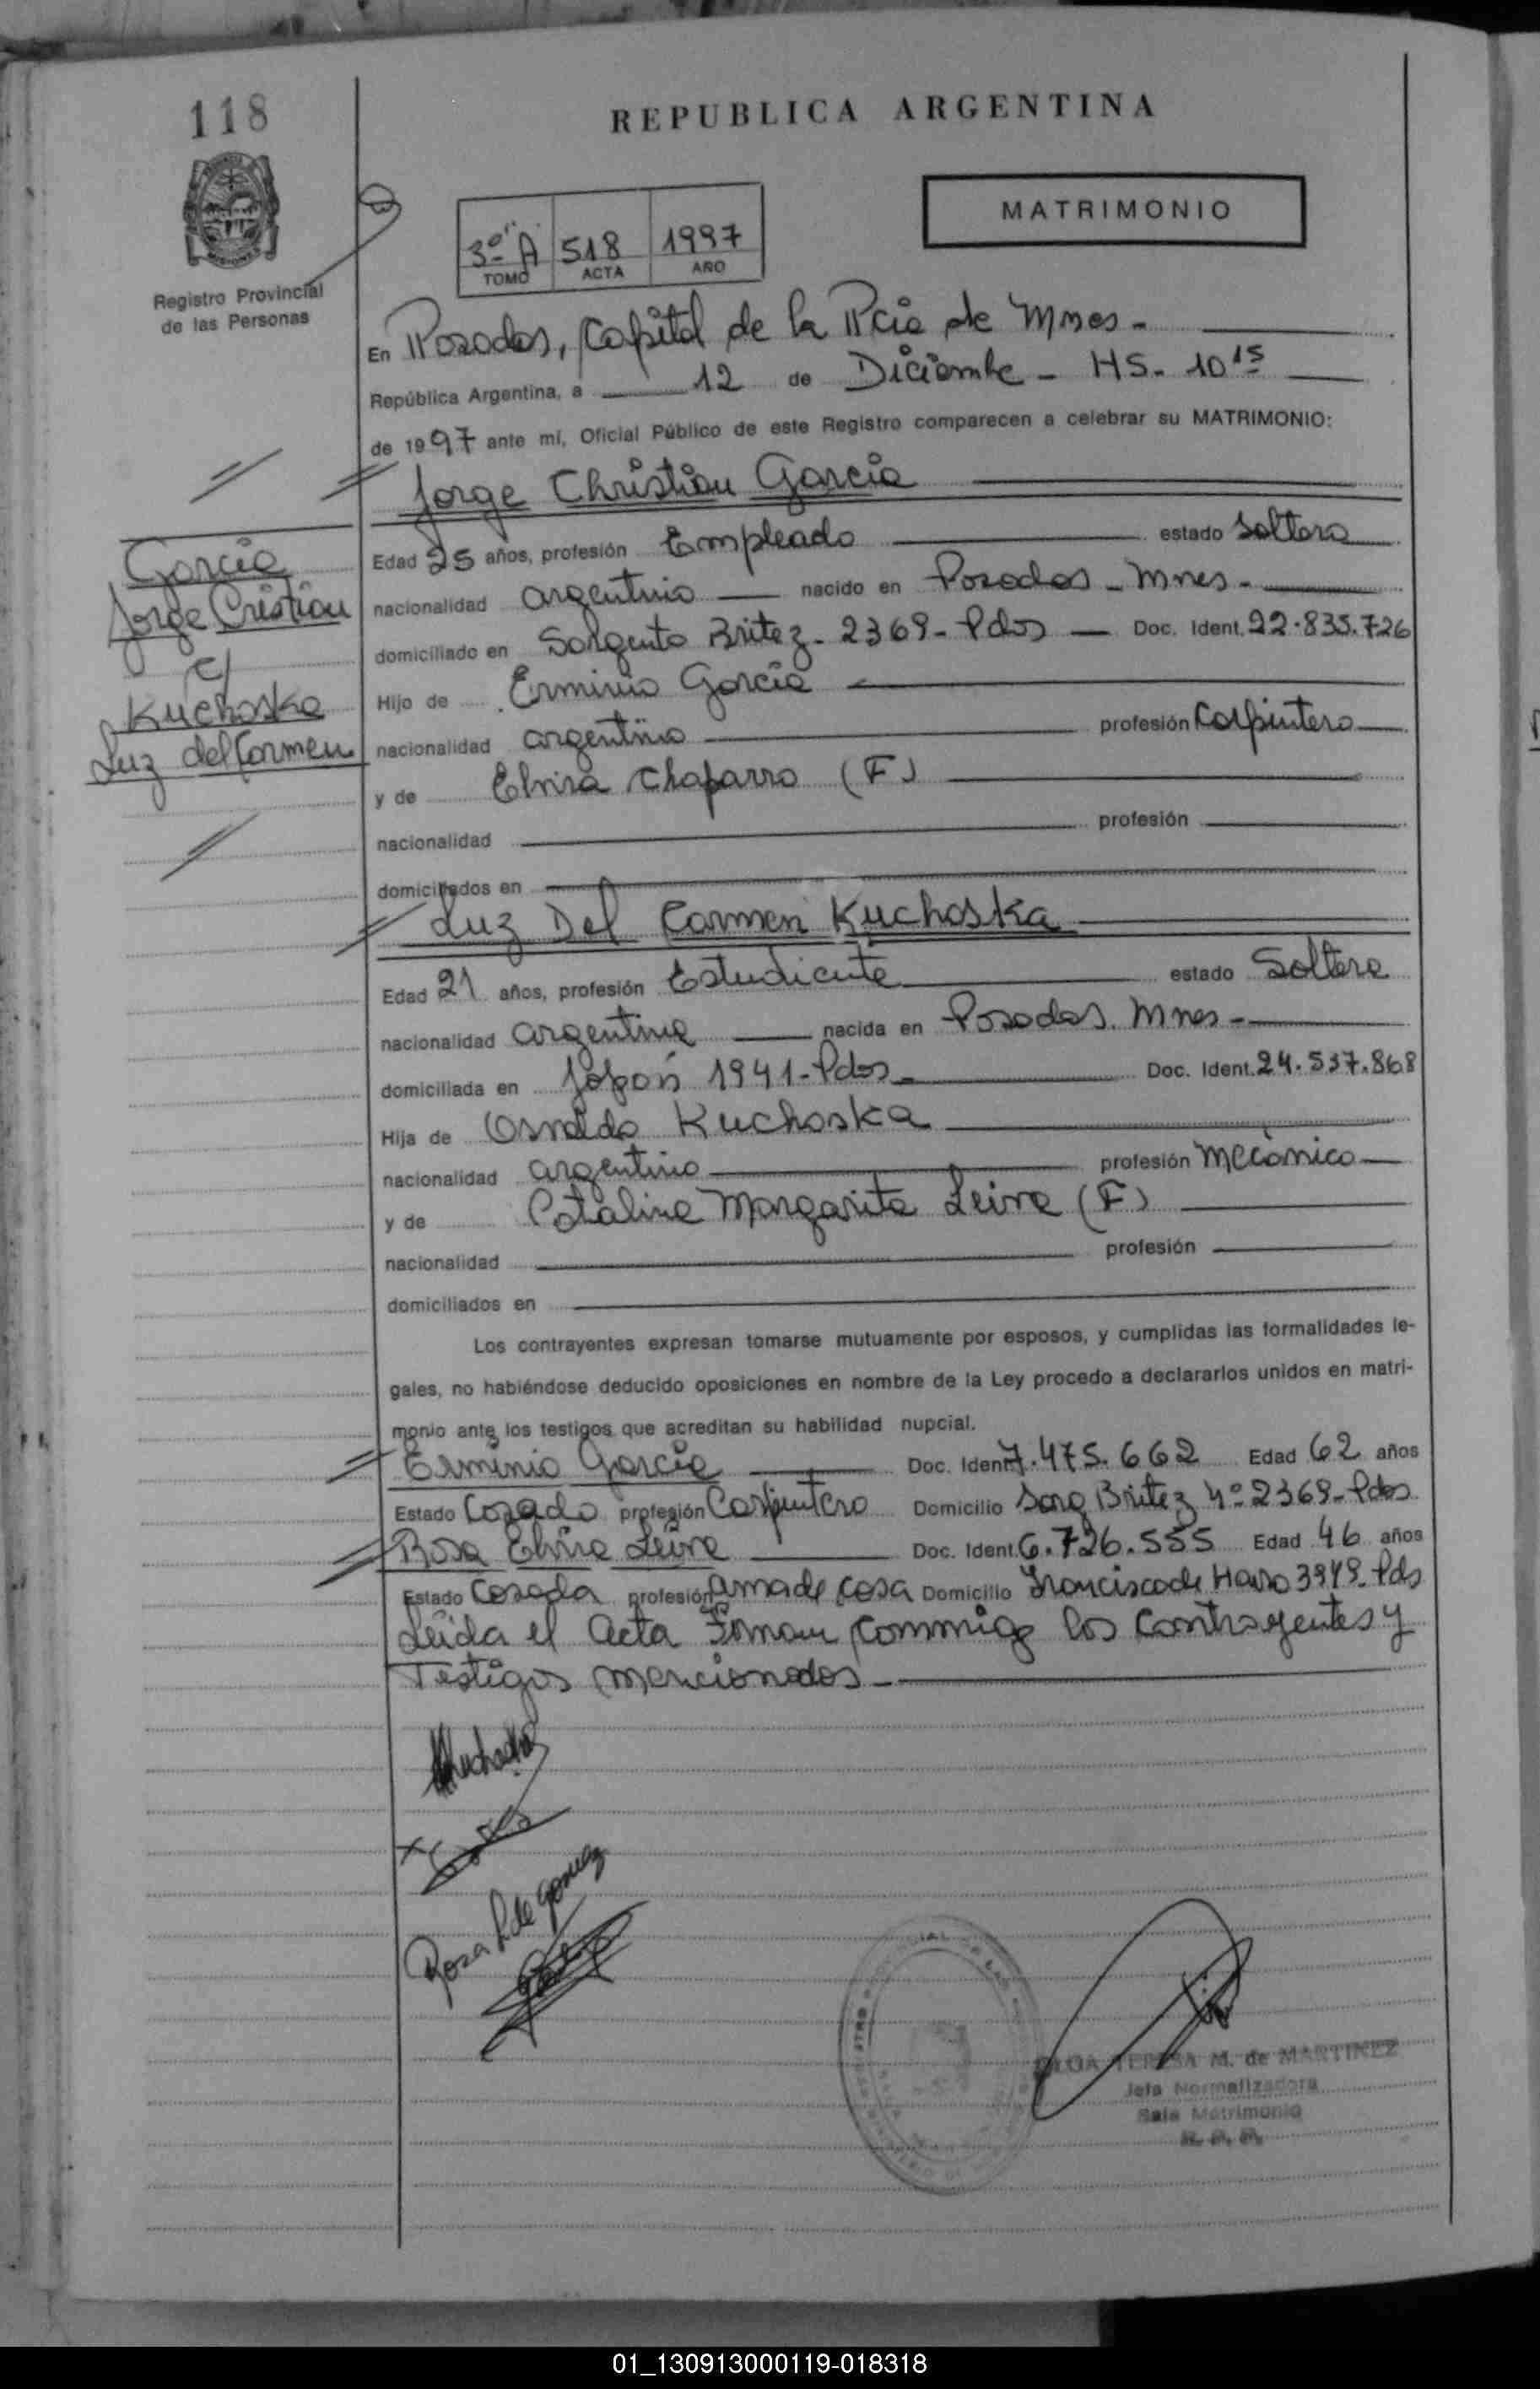 118
REPUBLICA ARGENTINA
MATRIMONIO
3º A 518 1997
TOMO ACTA AÑO
Registro Provincial
de las Personas
En Posadas, Capital de la Pcia de Mnes-
República Argentina, a 12 de Diciembre - HS. 10 15
de 1997 ante mí, Oficial Público de este Registro comparecen a celebrar su MATRIMONIO:
Jorge Christian García
García
Jorge Cristian
c/
Kuchoska
Luz del Carmen
Edad 25 años, profesión Empleado estado Soltero
nacionalidad argentino nacido en Posadas - Mnes-
domiciliado en Sargento Britez - 2369 - Pdas Doc. Ident. 22.835.726
Hijo de Erminio García
nacionalidad argentino profesión Carpintero
y de Elvira Chaparro (F)
nacionalidad profesión
domiciliados en
Luz Del Carmen Kuchoska
Edad 21 años, profesión Estudiante estado Soltera
nacionalidad argentina nacida en Posadas. Mnes-
domiciliada en Japón 1941-Pdas- Doc. Ident. 24.537.868
Hija de Osvaldo Kuchoska
nacionalidad argentino profesión mecánico
y de Catalina Margarita Leiva (F)
nacionalidad profesión
domiciliados en
Los contrayentes expresan tomarse mutuamente por esposos, y cumplidas las formalidades le-
gales, no habiéndose deducido oposiciones en nombre de la Ley procedo a declararlos unidos en matri-
monio ante los testigos que acreditan su habilidad nupcial.
Erminio García Doc. Ident 7.475.662 Edad 62 años
Estado Casado profesión Carpintero Domicilio Sarg Britez Nº 2369-Pdas
Rosa Elvira Leiva Doc. Ident. 6.726.555 Edad 46 años
Estado Casada profesión ama de casa Domicilio Francisco de Haro 3949-Pds
Leída el Acta Firman conmigo los contrayentes y
Testigos mencionados-
Kuchoska
Rosa L de Gomez
OLGA TERESA M. de MARTINEZ
Jefa Normalizadora
Sala Matrimonio
R. P. P.
01_130913000119-018318